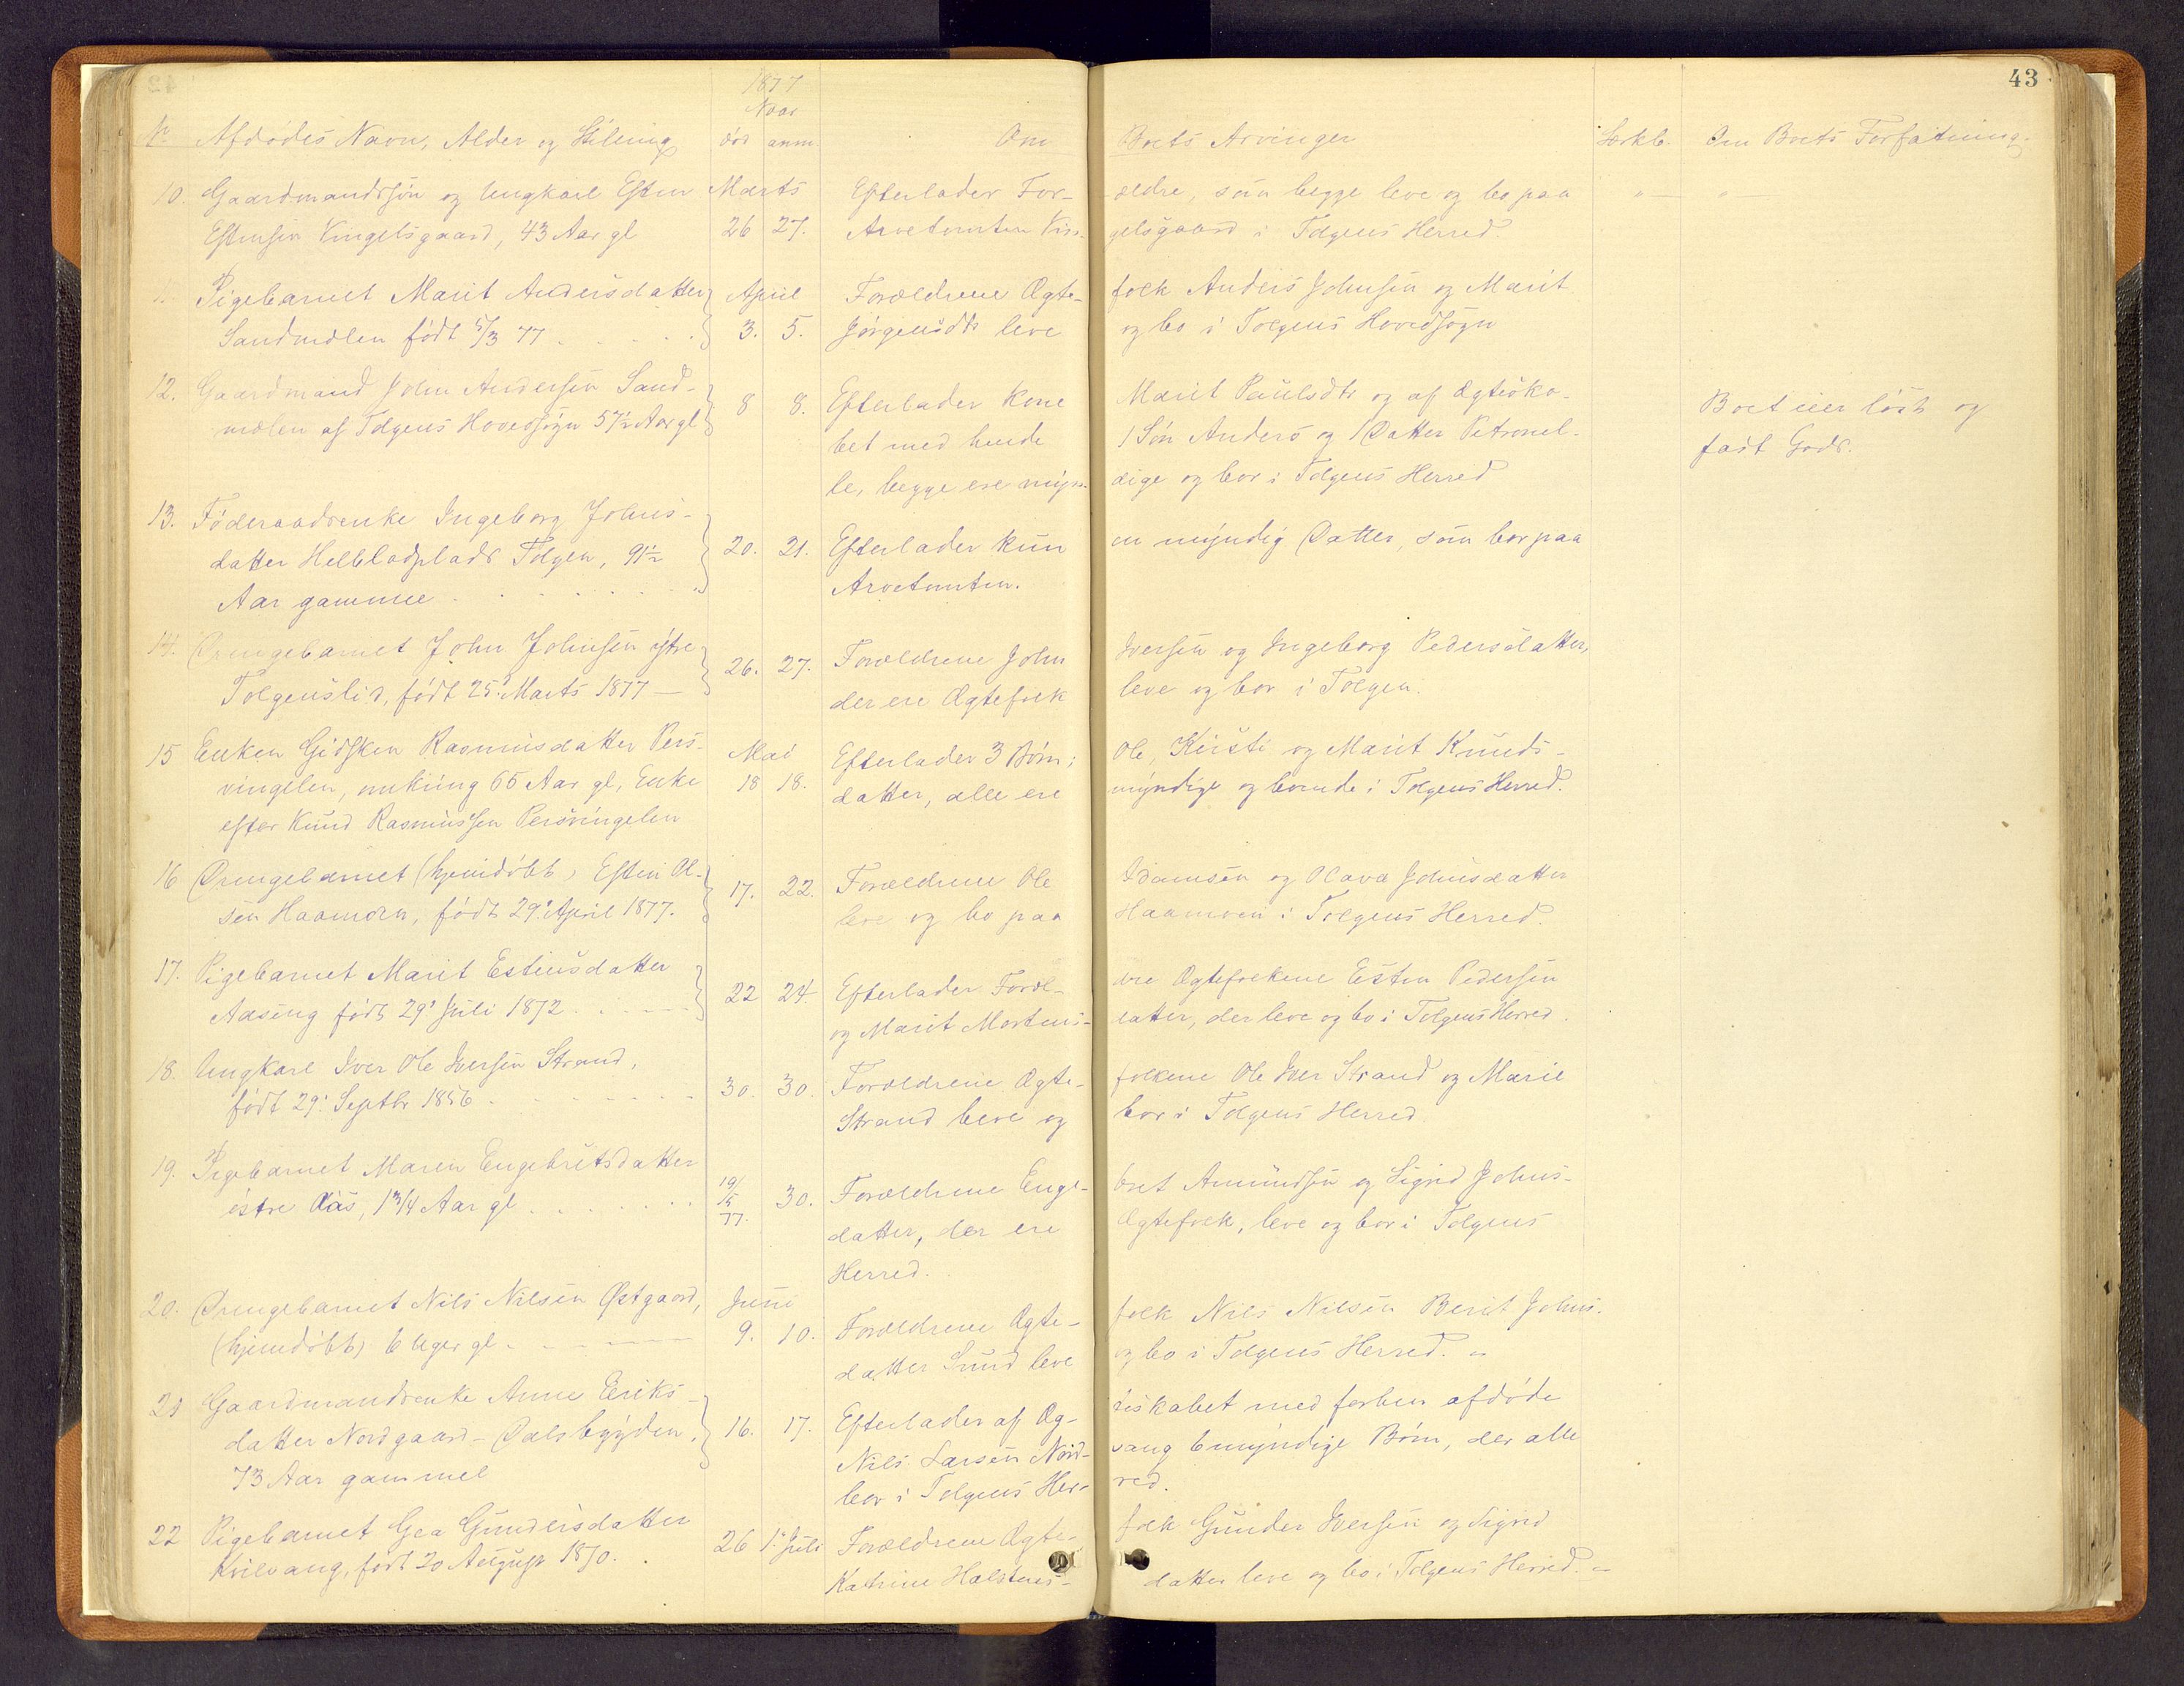 43
1877
Naar
No Afdødes Navn, Alder og Stilling død anm. Om Boets Arvinger Særkb. Om Boets Forfatning.
10. Gaardmandssøn og Ungkarl Esten Marts Efterlader For- ældre, som begge leve og bo paa " — " —
Estensen Vingelsgaard, 43 Aar gl 26 27. Arvetomten Vin- gelsgaard i Tolgens Herred.
Pigebarnet Marit Andersdatter April Forældrene Ægte- folk Anders Johnsen og Marit
Sandmælen født 5/3 77 3. 5. Jørgensdtr leve og bo i Tolgens Hovedsogn
12. Gaardmand John Andersen Sand- 8 8. Efterlader Kone Marit Paulsdtr og af Ægteska- Boet eier løst og
mælen af Tolgens Hovedsogn 57½ Aar gl bet med hende 1 Søn Anders og 1 Datter Petronel- fast Gods.
le, begge ere myn- dige og bor i Tolgens Herred
13. Føderaadsenke Ingeborg Johns- 20. 21. Efterlader kun en myndig Datter, som bor paa
datter Tolgen, 91½ Arvetomten.
Aar gammel
14. Drengebarnet John Johnsen østre 26. 27. Forældrene John Iversen og Ingeborg Pedersdatter,
Tolgenslid, født 25d Marts 1877 — der ere Ægtefolk leve og bor i Tolgen.
15 Enken Gidsken Rasmusdatter Pers- Mai Efterlader 3 Børn: Ole, Kirsti og Marit Knuds-
vingelen, omkring 65 Aar gl, Enke 18 18. datter, alle ere myndige og boende i Tolgens Herred.
efter Knud Rasmussen Persvingelen
16 Drengebarnet (hjemdøbt) Esten Ol- 17. 22. Forældrene Ole og Olava Johnsdatter
sen Haamoen, født 29d April 1877. leve og bo paa Haamoen i Tolgens Herred.
17. Pigebarnet Marit Estensdatter 22 24. Efterlader Foræl- dre Ægtefolkene Esten Pedersen
Aasing født 29d Juli 1872 og Marit Mortens- datter, der leve og bo i Tolgens Herred.
18. Ungkarl Iver Ole Iversen Strand, 30. 30. Forældrene Ægte- folkene Ole Iver Strand og Marie
født 29d Septbr 1856 Strand leve og bor i Tolgens Herred
19. Pigebarnet Maren Engebretsdatter 19/5 77. 30. Forældrene Enge- bret Amundsen og Sigrid Johns-
østre Aas, 1 3/4 Aar gl datter, der ere Ægtefolk, leve og bor i Tolgens
Herred.
20. Drengebarnet Nils Nilsen Østgaard, Juni Forældrene Ægte- folk Nils Nilsen Berit Johns-
(hjemdøbt) 6 Uger gl. 9. 10. datter Sund leve og bo i Tolgens Herred. —
21 Gaardmandsenke Anne Eriks- 16. 17. Efterlader af Æg- teskabet med forhen afdøde
datter Nordgaard - Dalsbygden, Nils Larsen Nord- vang 6 myndige Børn, der alle
73 Aar gammel bor i Tolgens Her- red.
22 Pigebarnet Gea Gundersdatter 26 1d Juli Forældrene Ægte- folk Gunder Iversen og Sigrid
Kvilvang, født 20 August 1870. Katrine Halstens- datter leve og bo i Tolgens Herred. —